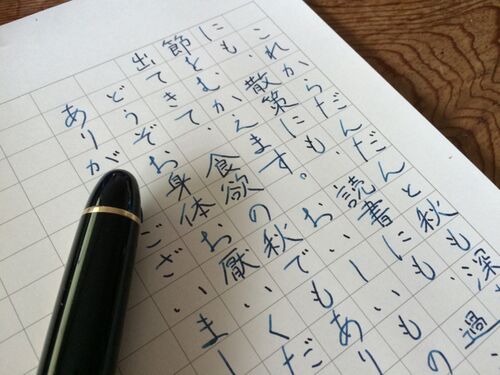 これからだんだんと秋も深
にも、散策にも、読書にもいい過
節をむかえます。おいしいもの
出てきて、食欲の秋でもあり
どうぞお身体お厭いくだ
ありが
ございまし